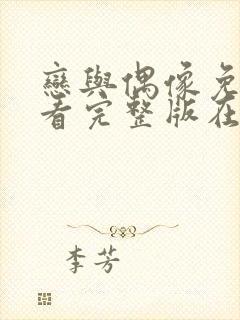 戀與偶像免
看完整版在
李芳